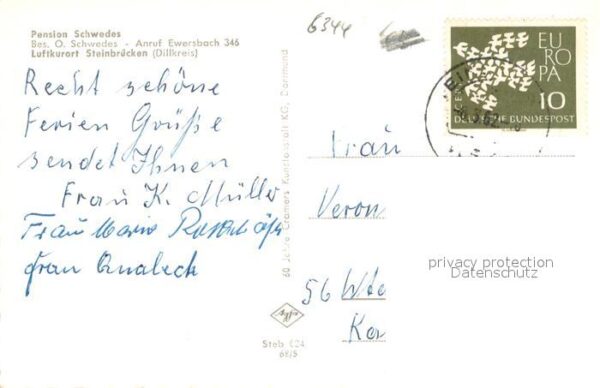 Pension Schwedes
Bes. O. Schwedes - Anruf Ewersbach 346
Luftkurort Steinbrücken (Dillkreis)
6344
Recht schöne
Ferien Grüße
sendet Ihnen
Frau K. Müller
Frau Maria
Frau
60 Jahre Cramers Kunstanstalt KG, Dortmund
Steb 624
68/5
EUROPA
10
DEUTSCHE BUNDESPOST
Frau
Veron
56 Wte
Ka
privacy protection
Datenschutz